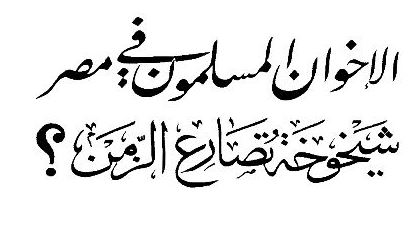 الإخوان المسلمون في مصر
شَيْخوخَة تُصَارِع الزّمَنْ ؟